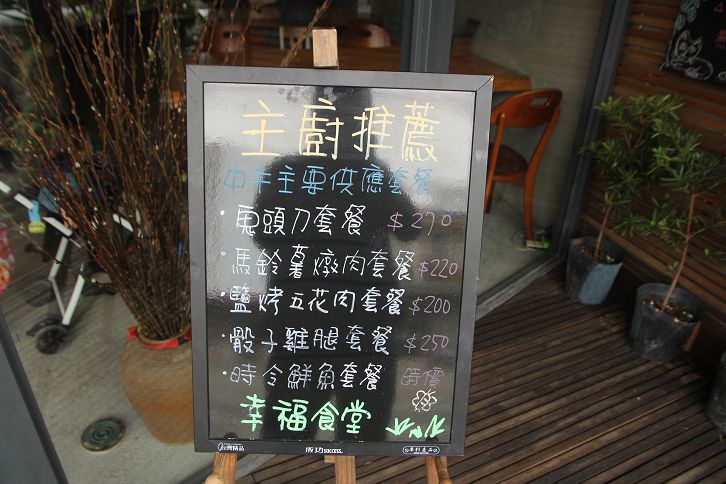 主廚推薦
中午主要供應套餐
·鬼頭刀套餐 $270
·馬鈴薯燉肉套餐 $220
·鹽烤五花肉套餐 $200
·骰子雞腿套餐 $250
·時令鮮魚套餐 時價
幸福食堂
成功 success.